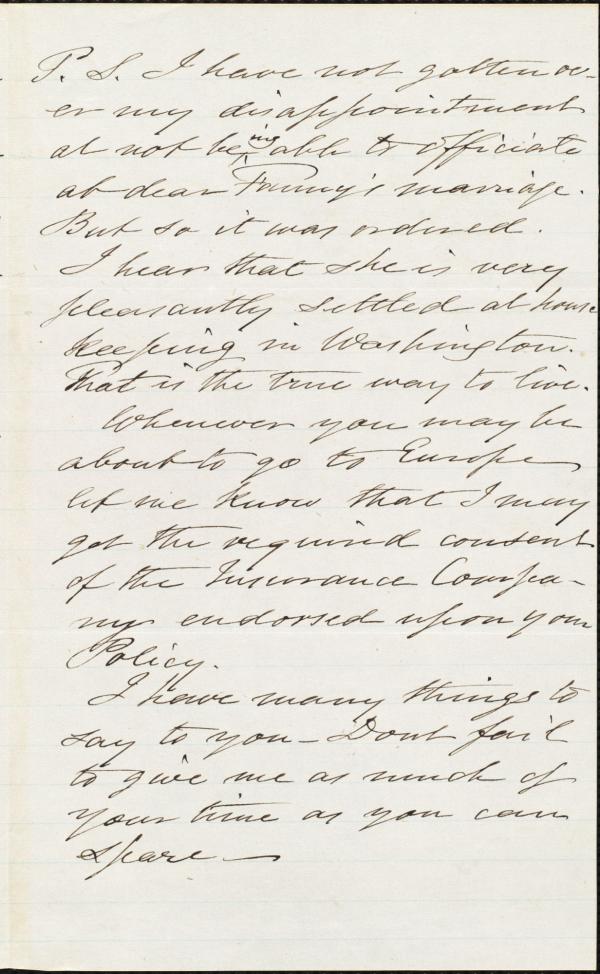 P. S. I have not gotten ov-
er my disappointment
at not being able to officiate
at dear Fanny's marriage.
But so it was ordered.
I hear that she is very
pleasantly settled at house
keeping in Washington.
That is the true way to live.
Whenever you may be
about to go to Europe
let me know that I may
get the required consent
of the Insurance Compa-
ny endorsed upon your
Policy.
I have many things to
say to you - Dont fail
to give me as much of
your time as you can
spare -